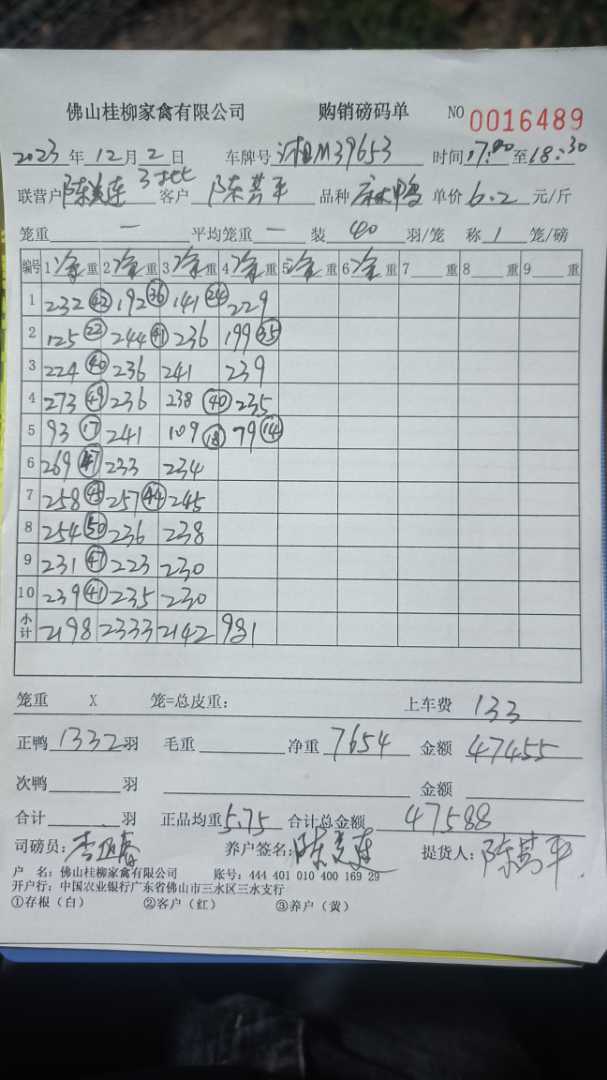 佛山桂柳家禽有限公司 购销磅码单 NO 0016489
2023年12月2日 车牌号 湘M39653 时间17:00至18:30
联营户 陈美连 3批 客户 陈黄平 品种 麻鸭 单价 6.2 元/斤
笼重 — 平均笼重 — 装 40 羽/笼 称 1 笼/磅
编号 1净重 2净重 3净重 4净重 5净重 6净重 7 重 8 重 9 重
1 232 ㊷ 192 ㊱ 141 ㉔ 229
2 125 ㉒ 244 ㊶ 236 199 ㉟
3 224 ㊵ 236 241 239
4 273 ㊾ 236 238 ㊵ 235
5 93 ⑰ 241 109 ⑱ 79 ⑭
6 269 ㊼ 233 234
7 258 ㊺ 257 ㊹ 245
8 254 ㊿ 236 238
9 231 ㊼ 223 230
10 239 ㊶ 235 230
小计 2198 2333 2142 981
笼重 X 笼=总皮重: 上车费 133
正鸭 1332 羽 毛重 净重 7654 金额 47455
次鸭 羽 金额
合计 羽 正品均重 5.75 合计总金额 47588
司磅员: 养户签名: 陈美连 提货人:
户 名: 佛山桂柳家禽有限公司 账号: 444 401 010 400 169 29
开户行: 中国农业银行广东省佛山市三水区三水支行
①存根（白） ②客户（红） ③养户（黄）